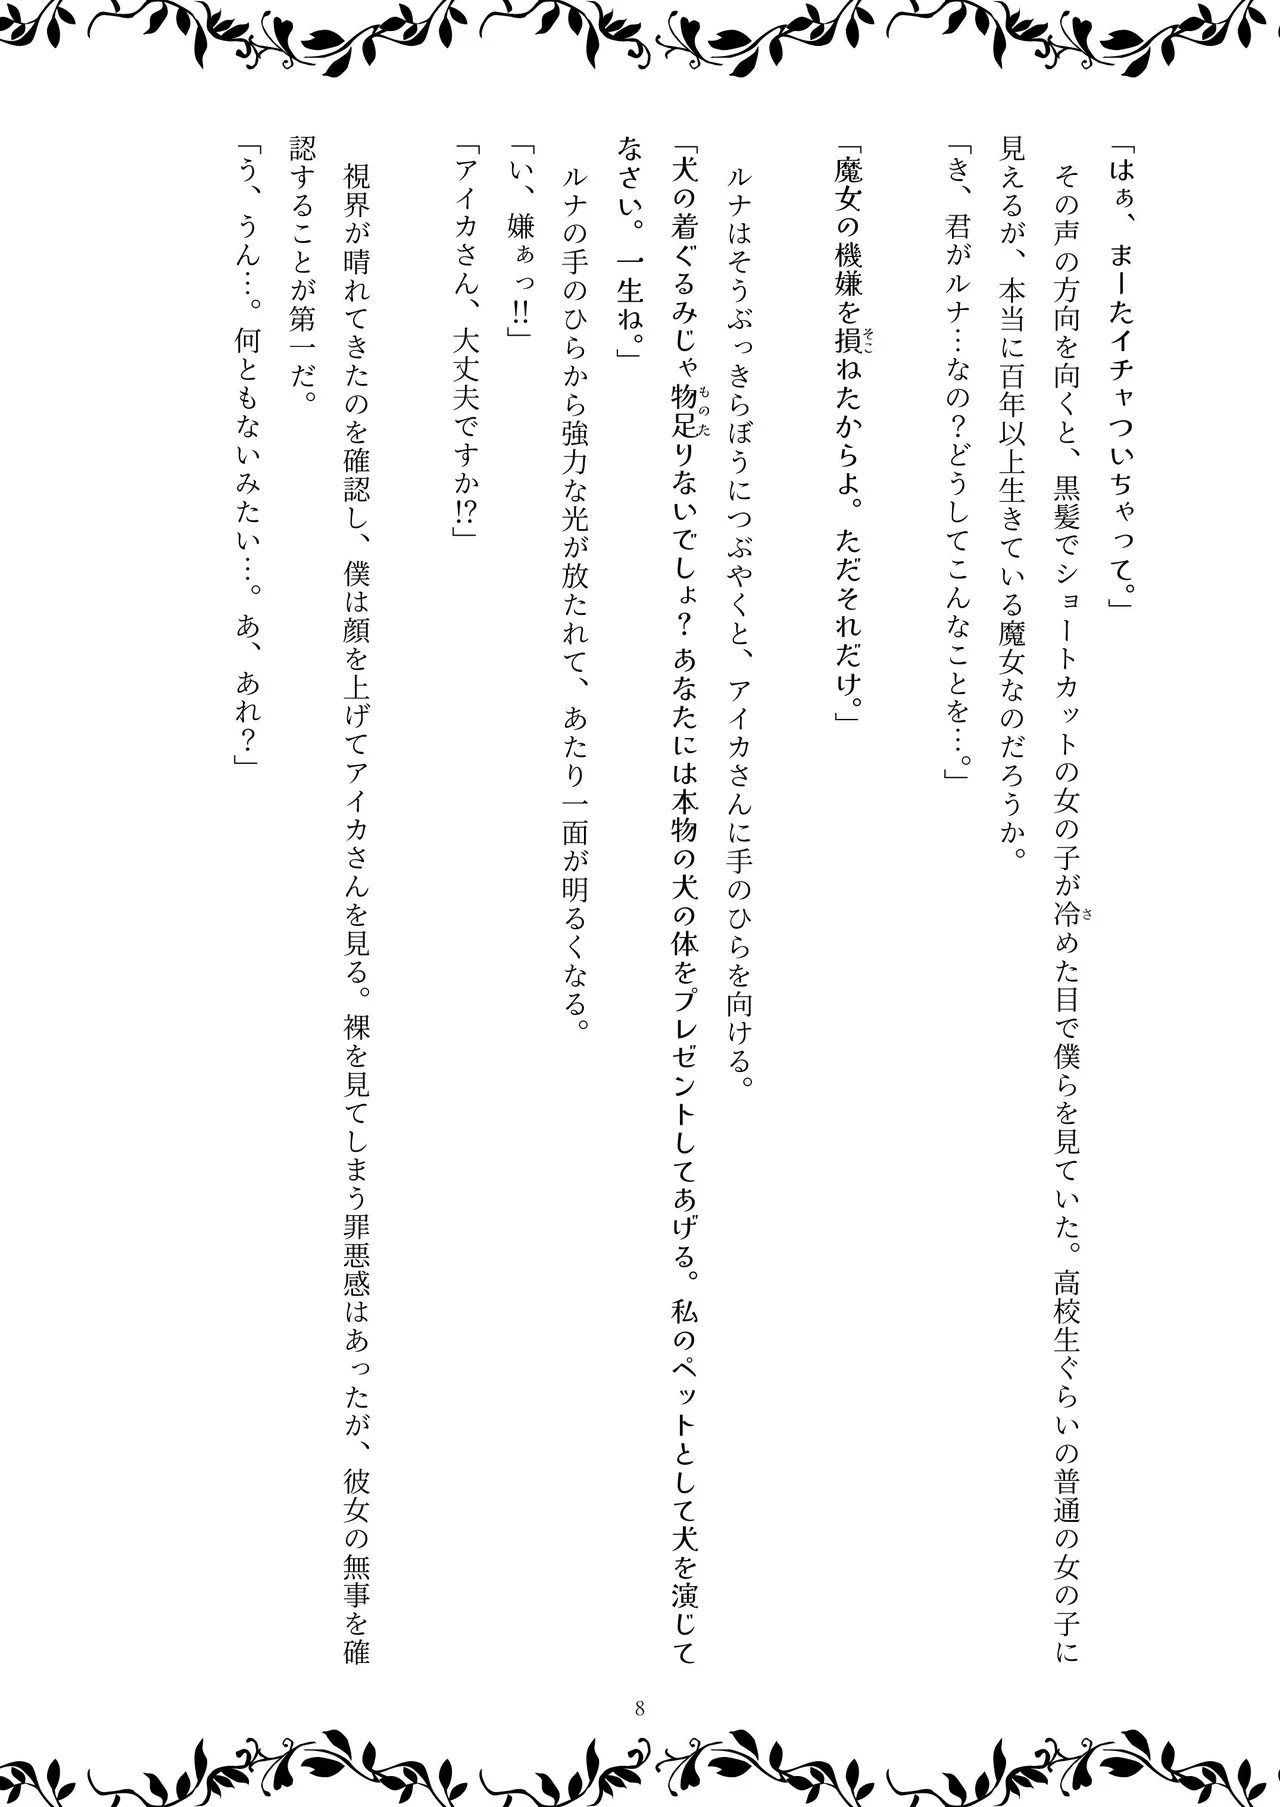 「はぁ、まーたイチャついちゃって。」
　その声の方向を向くと、黒髪でショートカットの女の子が冷めた目で僕らを見ていた。高校生ぐらいの普通の女の子に
見えるが、本当に百年以上生きている魔女なのだろうか。
「き、君がルナ…なの？どうしてこんなことを…。」
「魔女の機嫌を損ねたからよ。ただそれだけ。」
　ルナはそうぶっきらぼうにつぶやくと、アイカさんに手のひらを向ける。
「犬の着ぐるみじゃ物足りないでしょ？あなたには本物の犬の体をプレゼントしてあげる。私のペットとして犬を演じて
なさい。一生ね。」
　ルナの手のひらから強力な光が放たれて、あたり一面が明るくなる。
「い、嫌ぁっ!!」
「アイカさん、大丈夫ですか!?」
　視界が晴れてきたのを確認し、僕は顔を上げてアイカさんを見る。裸を見てしまう罪悪感はあったが、彼女の無事を確
認することが第一だ。
「う、うん…。何ともないみたい…。あ、あれ？」
8